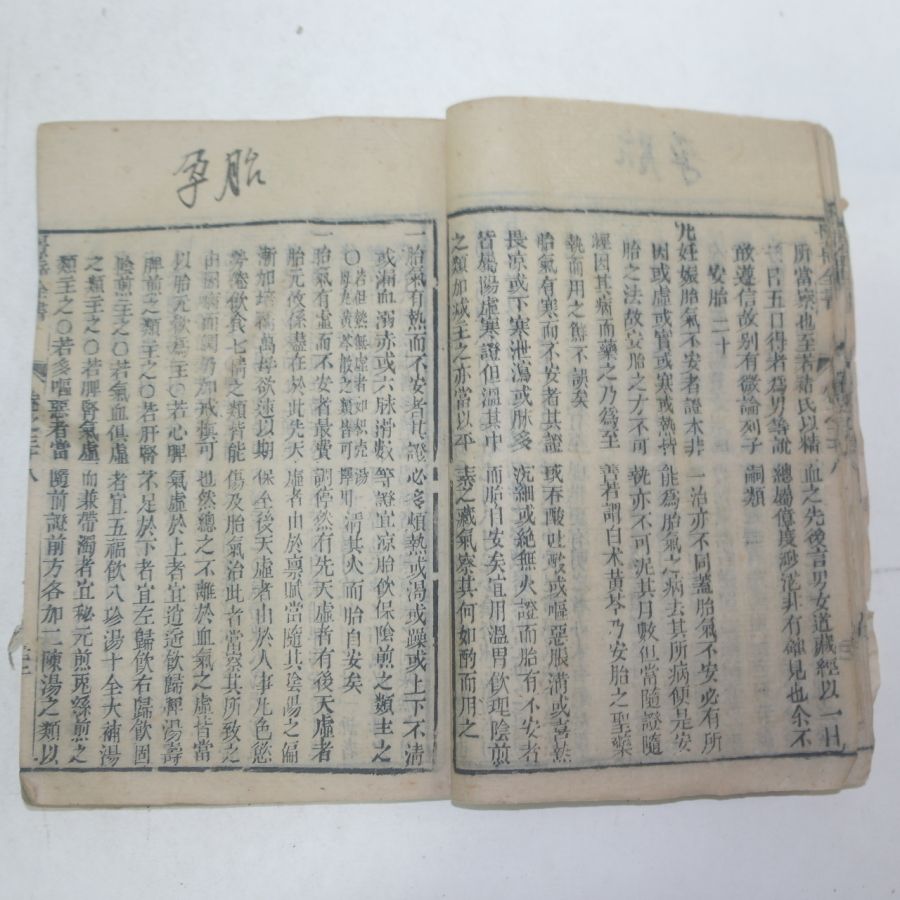 所當察也至若褚氏以精血之先後言男女道藏經以一日
三日五日得者為男等說總屬億度渺茫非有確見也余不
敢遵信故别有微論列子嗣類
安胎二十
凡妊娠胎氣不安者證本非一治亦不同蓋胎氣不安必有所
因或虛或實或寒或熱皆能為胎氣之病去其所病便是安
胎之法故安胎之方不可執亦不可泥其月數但當隨證隨
經因其病而藥之乃為至善若謂白术黃芩乃安胎之聖藥
執而用之鮮不誤矣
胎氣有寒而不安者其證或吞酸吐酸或嘔惡脹滿或喜熱
畏凉或下寒泄瀉或脉多沉細或絶無火證而胎有不安者
皆屬陽虛寒證但溫其中而胎自安矣宜用溫胃飲理陰煎
之類加减主之亦當以平素之藏氣察其何如酌而用之
孕胎
一胎氣有熱而不安者其證必多煩熱或渴或躁或上下不清
或漏血溺赤或六脉滑數等證宜凉胎飲保陰煎之類主之
〇若但熱無虛者如枳壳湯一母丸黃芩散之類皆可擇用清其火而胎自安矣
一胎氣有虛而不安者最費調停然有先天虛者有後天虛者
胎元攸係盡在於此先天虛者由於禀賦當隨其陰陽之偏
漸加培補萬毋欲速以期保全後天虛者由於人事凡色慾
勞倦飲食七情之類皆能傷及胎氣治此者當察其所致之
由因病而調仍加戒慎可也然總之不離於血氣之虛皆當
以胎元飲為主〇若心脾氣虛於上者宜逍遙飲歸脾湯壽
脾煎之類主之〇若肝腎不足於下者宜左歸飲右歸飲固
陰煎主之〇若氣血俱虛者宜五福飲八珍湯十全大補湯
之類主之〇若脾腎氣虛而兼帶濁者宜秘元煎菟絲煎之
類主之〇若多嘔惡者當隨前證前方各加二陳湯之類以